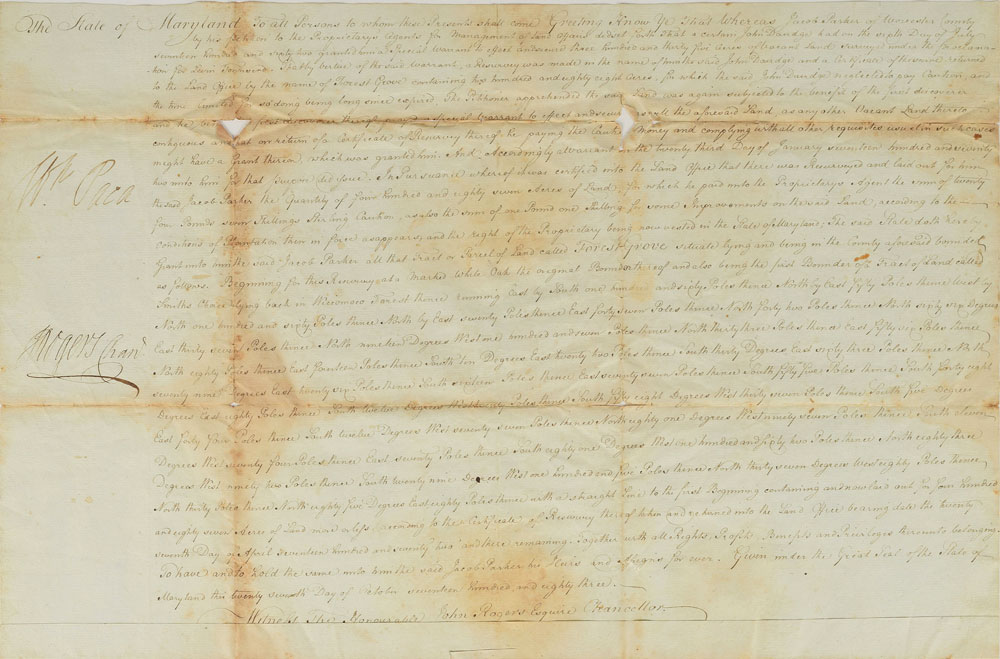 The State of Maryland To all Persons to whom these Presents shall come Greeting Know Ye That Whereas Jacob Parker of Worcester County
by his Petition to the Proprietarys Agents for Management of Land Affairs did set forth That a certain John Dandge had on the sixth Day of July
seventeen hundred and sixty has granted him a Special Warrant to affect and secure three hundred and thirty five Acres of Vacant Land surveyed under the proclama
tion for Levin That by virtue of the said Warrant, a Resurvey was made in the name of him the said John Dandge and a Certificate of the same returned
to the Land Office by the name of Forrest Grove containing two hundred and eighty eight Acres, for which the said John Dandge neglected to pay Caution, and
the time limited for so doing being long since expired. The Petitioner apprehended the said Land was again subjected to the benefit of the first discoverer
and he Special Warrant to affect and secure as well the aforesaid Land, as any other Vacant Land thereto
contiguous and that on return of a Certificate of Resurvey thereof he paying the Caution Money and complying with all other requisites usual in such cases
might have a Grant thereon which was granted him. And accordingly a Warrant on the twenty third Day of January seventeen hundred and seventy
two unto him for that purpose did issue. In Pursuance whereof it was certified into the Land Office that there was Resurveyed and laid out for him
the said Jacob Parker the Quantity of four hundred and eighty seven Acres of Land, for which he paid unto the Proprietarys Agent the sum of twenty
four Pounds seven Shillings Sterling Caution, as also the sum of one Pound one Shilling for some Improvements on the said Land, according to the
conditions of Plantation then in force as appears, and the right of the Proprietary being now vested in the State of Maryland; The said State doth hereby
Grant unto him the said Jacob Parker all that Tract or Parcel of Land called Forest Grove situate lying and being in the County aforesaid bounded
as follows. Beginning for this Resurvey at a Marked White Oak the original Bounder thereof and also being the first Bounder of a Tract of Land called
Souths Chance lying back in Wiccomoco Forrest thence running East by South one hundred and sixty Poles thence North by East fifty Poles thence West by
North one hundred and sixty Poles thence North by East seventy Poles thence East forty seven Poles thence North forty two Poles thence North sixty six Degrees
East thirty seven Poles thence North nineteen Degrees West one hundred and seven Poles thence North thirty three Poles thence East fifty six Poles thence
North eighty Poles thence East fourteen Poles thence South ten Degrees East twenty two Poles thence South thirty Degrees East sixty three Poles thence North
seventy nine Degrees East twenty six Poles thence South sixteen Poles thence East seventy seven Poles thence South fifty five Poles thence South forty eight
Degrees East eighty Poles thence South twelve Degrees West Poles thence South eight Degrees West thirty seven Poles thence South five Degrees
East forty four Poles thence South twelve Degrees West seventy seven Poles thence North eighty one Degrees West ninety seven Poles thence North seven
Degrees West seventy four Poles thence East seventy Poles thence South eighty one Degrees West one hundred and fifty two Poles thence North eighty three
Degrees West ninety two Poles thence South twenty nine Degrees West one hundred and five Poles thence North thirty seven Degrees West eighty Poles thence
North thirty Poles thence North eighty five Degrees East eighty Poles thence with a straight Line to the first Beginning containing and now laid out for four hundred
and eighty seven Acres of Land more or less according to the Certificate of Resurvey thereof taken and returned into the Land Office bearing date the twenty
seventh Day of April seventeen hundred and seventy two and there remaining. Together with all Rights, Profits Benefits and Priviledges thereunto belonging
To have and to hold the same unto him the said Jacob Parker his Heirs and Assigns for ever. Given under the Great Seal of the State of
Maryland this twenty seventh Day of October seventeen hundred and eighty three.
Witness The Honourable John Rogers Esquire Chancellor
Wm. Paca
J Rogers Chanr